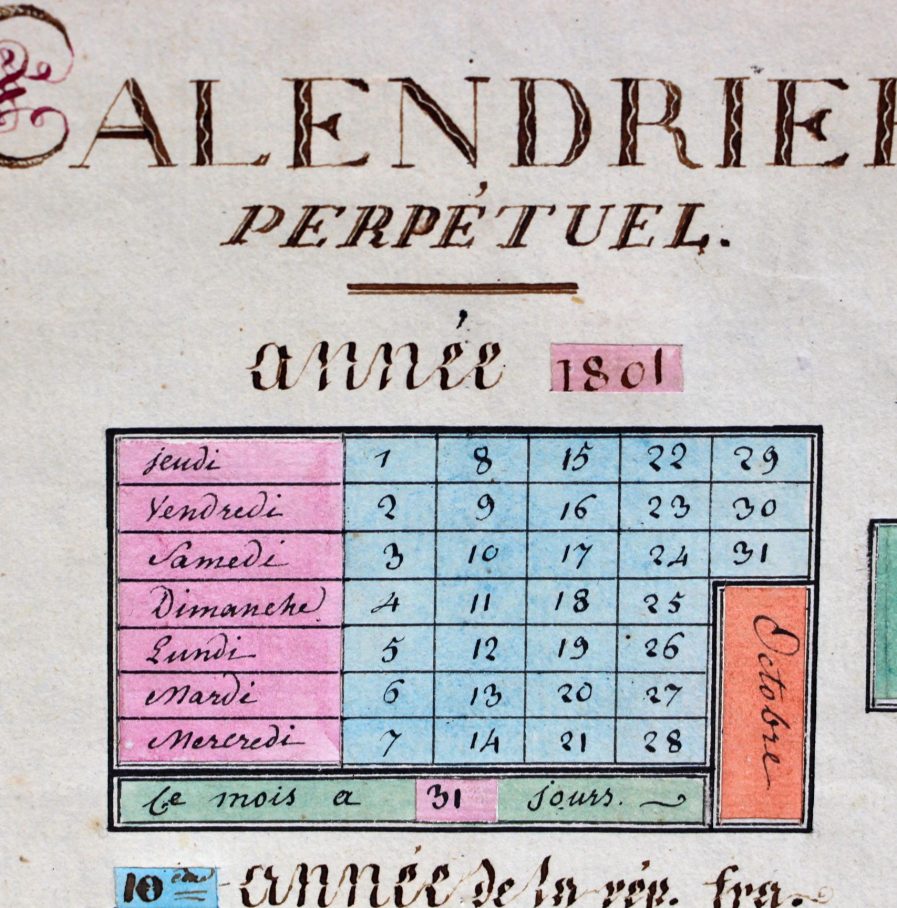 CALENDRIER
PERPÉTUEL.
année 1801
jeudi 1 8 15 22 29
Vendredi 2 9 16 23 30
Samedi 3 10 17 24 31
Dimanche 4 11 18 25
Lundi 5 12 19 26
Mardi 6 13 20 27
Mercredi 7 14 21 28
Octobre
Ce mois a 31 jours.
10eme année de la rép. fra.